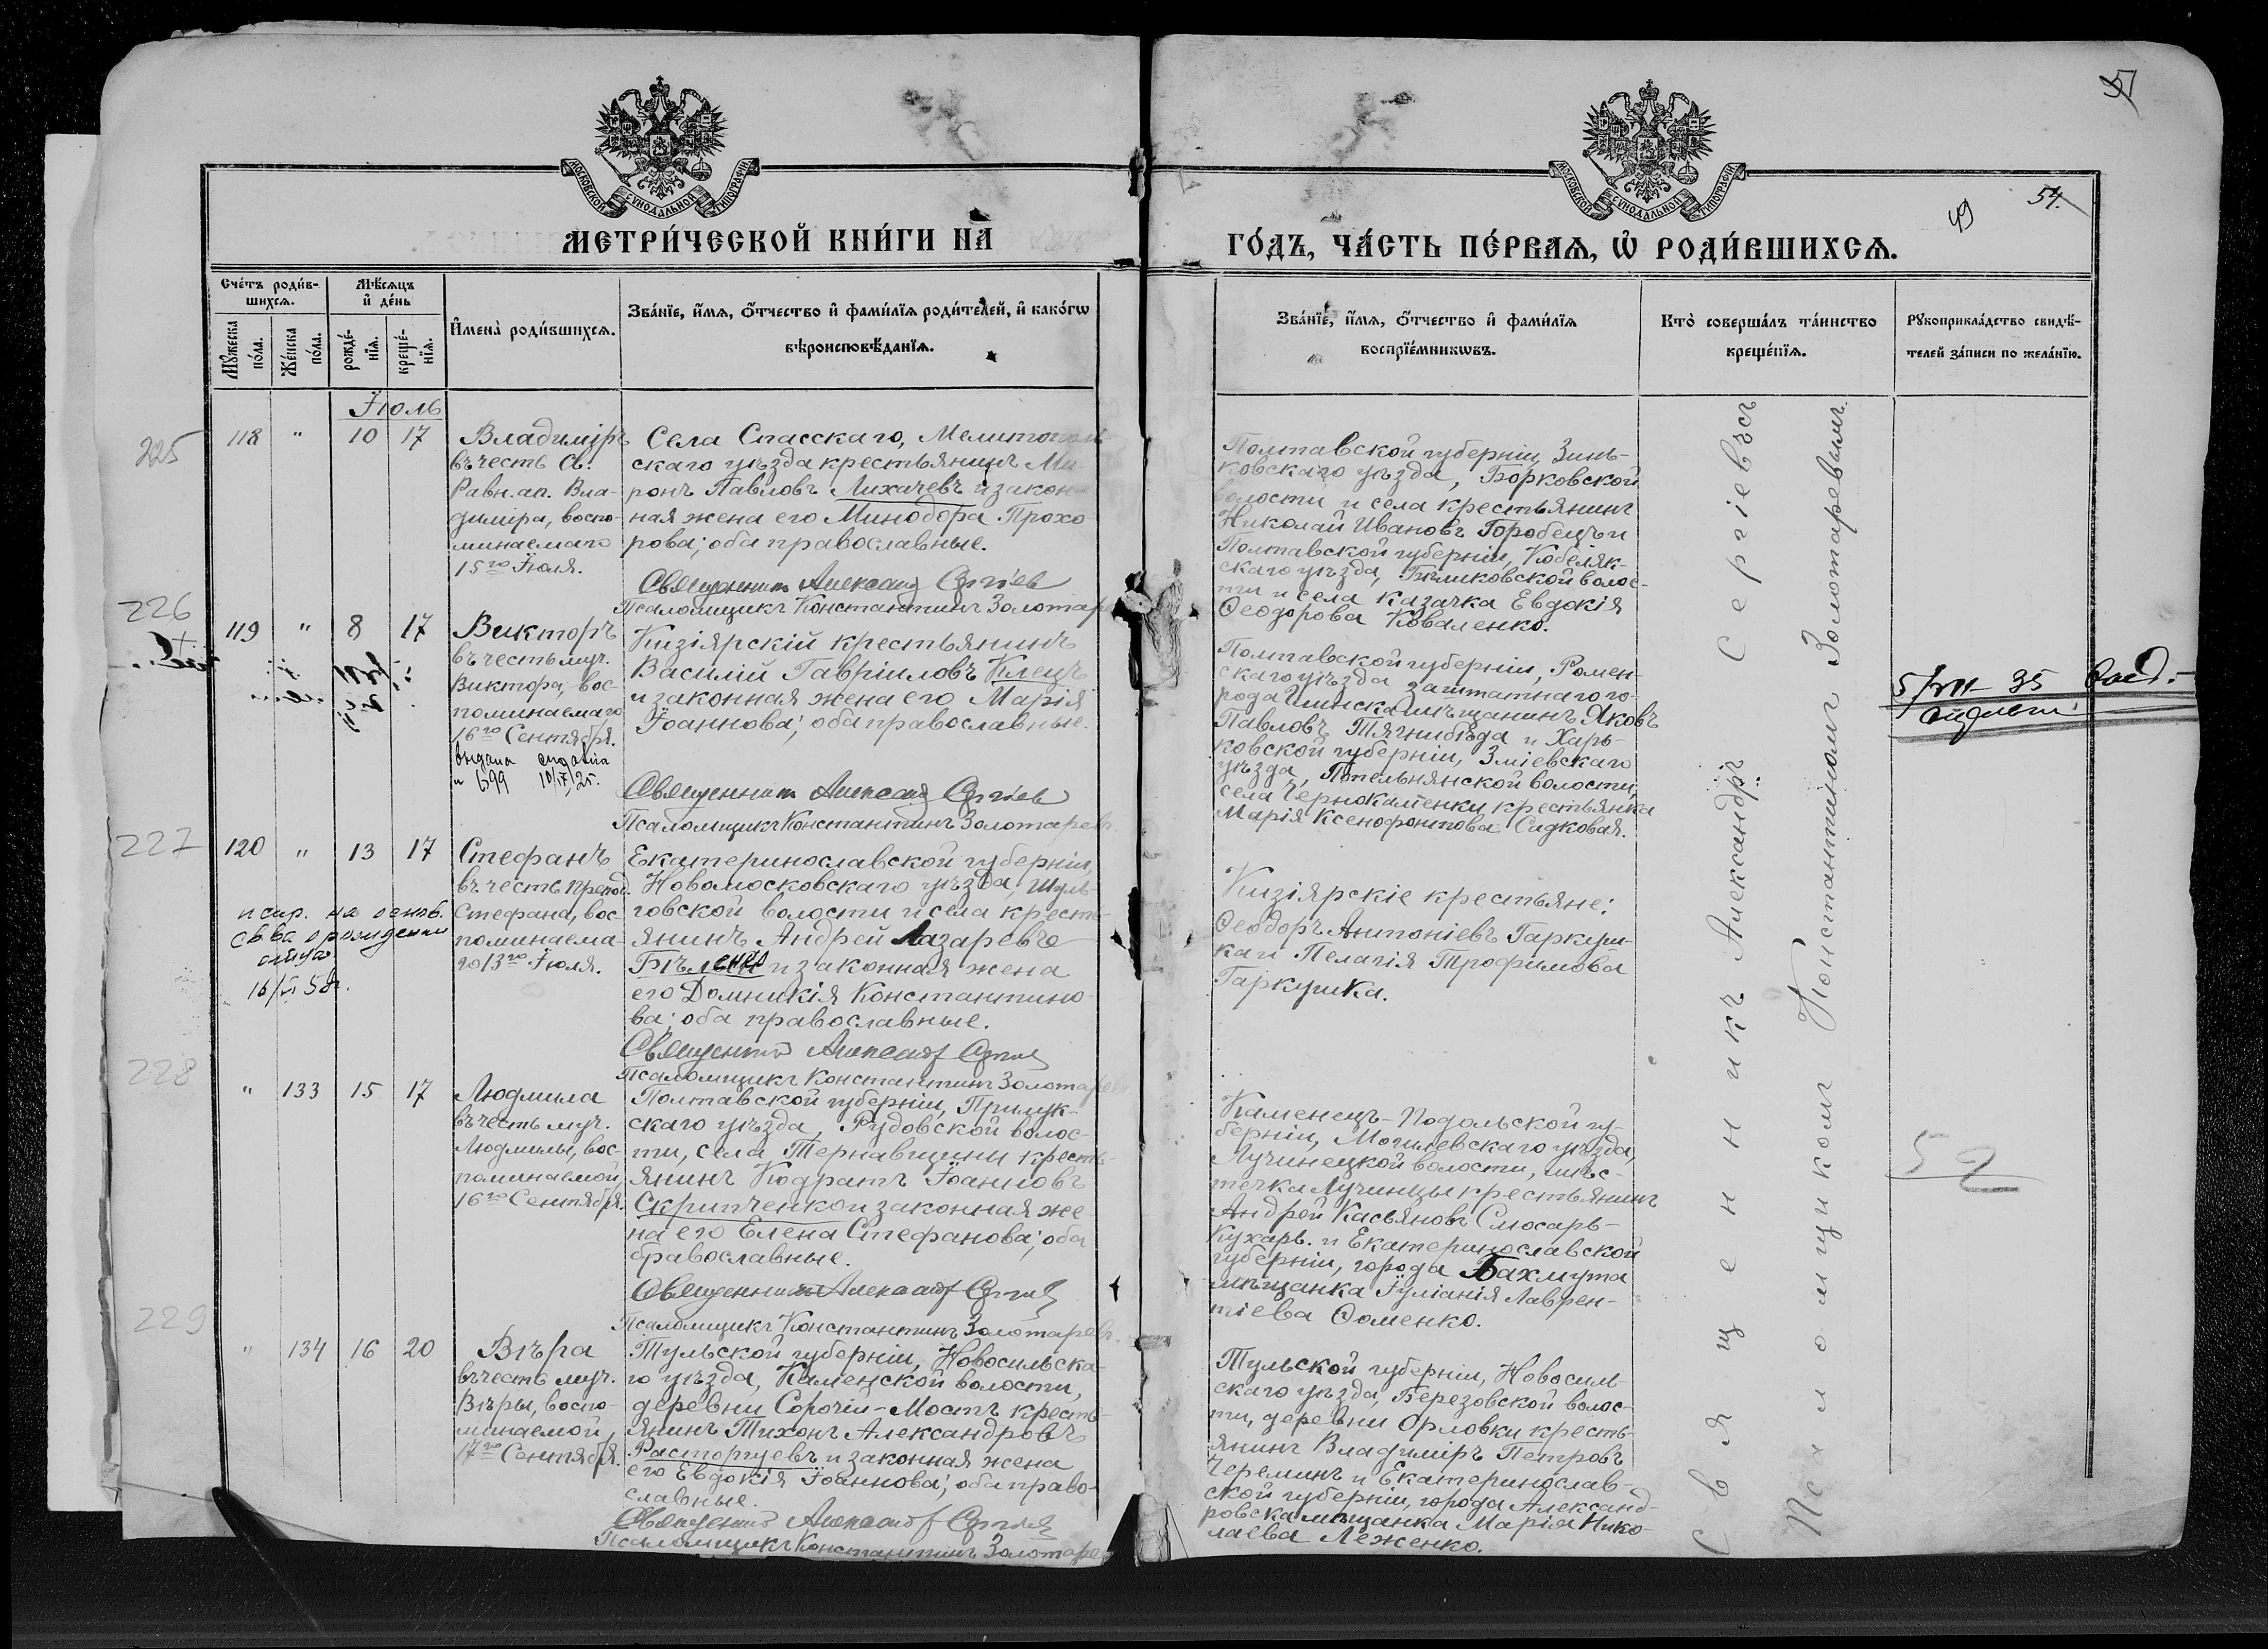 51
54.
49
МОСКОВСКОЙ СѴНОДАЛЬНОЙ ТИПОГРАФІИ
МОСКОВСКОЙ СѴНОДАЛЬНОЙ ТИПОГРАФІИ
МЕТРИ́ЧЕСКОЙ КНИ́ГИ НА̀
ГО́ДЪ, ЧА́СТЬ ПЕ́РВАѦ, Ѡ҆ РОДИ́ВШИХСѦ.
Сче́тъ роди́в-
шихсѧ.
Мꙋ́жеска по́ла.
Же́нска по́ла.
Мѣ́сѧцъ
и҆ де́нь
рожде́-
нїѧ.
креще́-
нїѧ.
И҆мена̀ роди́вшихсѧ.
Зва́нїе, и҆́мѧ, ѻ҆́тчество и҆ фами́лїѧ роди́телей, и҆ како́гѡ
вѣроисповѣ́данїѧ.
Зва́нїе, и҆́мѧ, ѻ҆́тчество и҆ фами́лїѧ
воспрїе́мникѡвъ.
Кто̀ соверша́лъ та́инство
креще́нїѧ.
Рꙋкоприкла́дство свидѣ́-
телей за́писи по жела́нїю.
Іюль
225
118 " 10 17
Владиміръ
въ честь Св.
Равн. ап. Вла-
диміра, воспо-
минаемаго
15го Іюля.
Села Спасскаго, Мелитополь-
скаго уѣзда крестьянинъ Ми-
ронъ Павловъ Лихачевъ и закон-
ная жена его Минодора Прохо
рова; оба православные.
Священникъ Александр Сергіев
Псаломщикъ Константинъ Золотар
Полтавской губерніи, Зинь-
ковскаго уѣзда, Борковской
волости и села крестьянинъ
Николай Ивановъ Горобецъ и
Полтавской губерніи, Кобеляк-
скаго уѣзда, Бѣликовской волос-
ти и села казачка Евдокія
Ѳеодорова Коваленко.
226
119 " 8 17
Викторъ
въ честь муч.
Виктора, вос-
поминаемаго
16го Сентября.
Выдана
№ 699
Кизіярскій крестьянинъ
Василій Гавріиловъ Клецъ
и законная жена его Марія
Іоаннова; оба православные.
Священникъ Александр Сергіев
Псаломщикъ Константинъ Золотарев
Полтавской губерніи, Ромен-
скаго уѣзда заштатнаго го-
рода Глинска мѣщанинъ Яковъ
Павловъ Тягнибѣда и Харь-
ковской губерніи, Зміевскаго
уѣзда, волости,
села Чернокаменки крестьянка
Марія Ксенофонтова Сидковая.
5/VII-35
227
120 " 13 17
Стефанъ
въ честь препод.
Стефана, вос
поминаема-
го 13го Іюля.
испр. на основ.
св-ва о рождении
отца
16/VI 58г.
Екатеринославской губерніи,
Новомосковскаго уѣзда, Шуль-
говской волости и села кресть-
янинъ Андрей Лазаревъ
и законная жена
его Домникія Константино-
ва; оба православные.
Священникъ Александр Сергіев
Псаломщикъ Константинъ Золотарев
Кизіярскіе крестьяне:
Ѳеодоръ Антоніевъ Гаркуш-
ка и Пелагія Трофимова
Гаркушка.
228
" 133 15 17
Людмила
въ честь муч.
Людмилы, вос-
поминаемой
16го Сентября.
Полтавской губерніи, Прилук-
скаго уѣзда, Рудовской волос-
ти, села Тернавщины кресть-
янинъ Кодратъ Іоанновъ
Скрипченко и законная же
на его Елена Стефанова; оба
православные.
Священникъ Александр Сергіев
Псаломщикъ Константинъ Золотарев.
Каменецъ-Подольской гу-
берніи, Могилевскаго уѣзда,
Лучинецкой волости, мѣс-
течка Лучинцы крестьянинъ
Андрей Касьяновъ Слюсарь-
Кухарь. и Екатеринославской
губерніи, города Бахмута
мѣщанка Іуліанія Лаврен-
тіева Ѳоменко.
52
229
" 134 16 20
Вѣра
въ честь муч.
Вѣры, воспо-
минаемой
17го Сентября.
Тульской губерніи, Новосильска-
го уѣзда, Каменской волости,
деревни Сорочій-Мостъ кресть-
янинъ Тихонъ Александровъ
Расторгуевъ и законная жена
его Евдокія Іоаннова; оба право-
славные.
Священникъ Александр Сергіев
Псаломщикъ Константинъ Золотарев
Тульской губерніи, Новосиль-
скаго уѣзда, Березовской волос-
ти, деревни Орловки кресть-
янинъ Владиміръ Петровъ
Череминъ и Екатеринослав-
ской губерніи, города Александ-
ровска мѣщанка Марія Нико-
лаева Леженко.
Священникъ Александръ Сергіевъ съ
Псаломщикомъ Константиномъ Золотаревымъ.